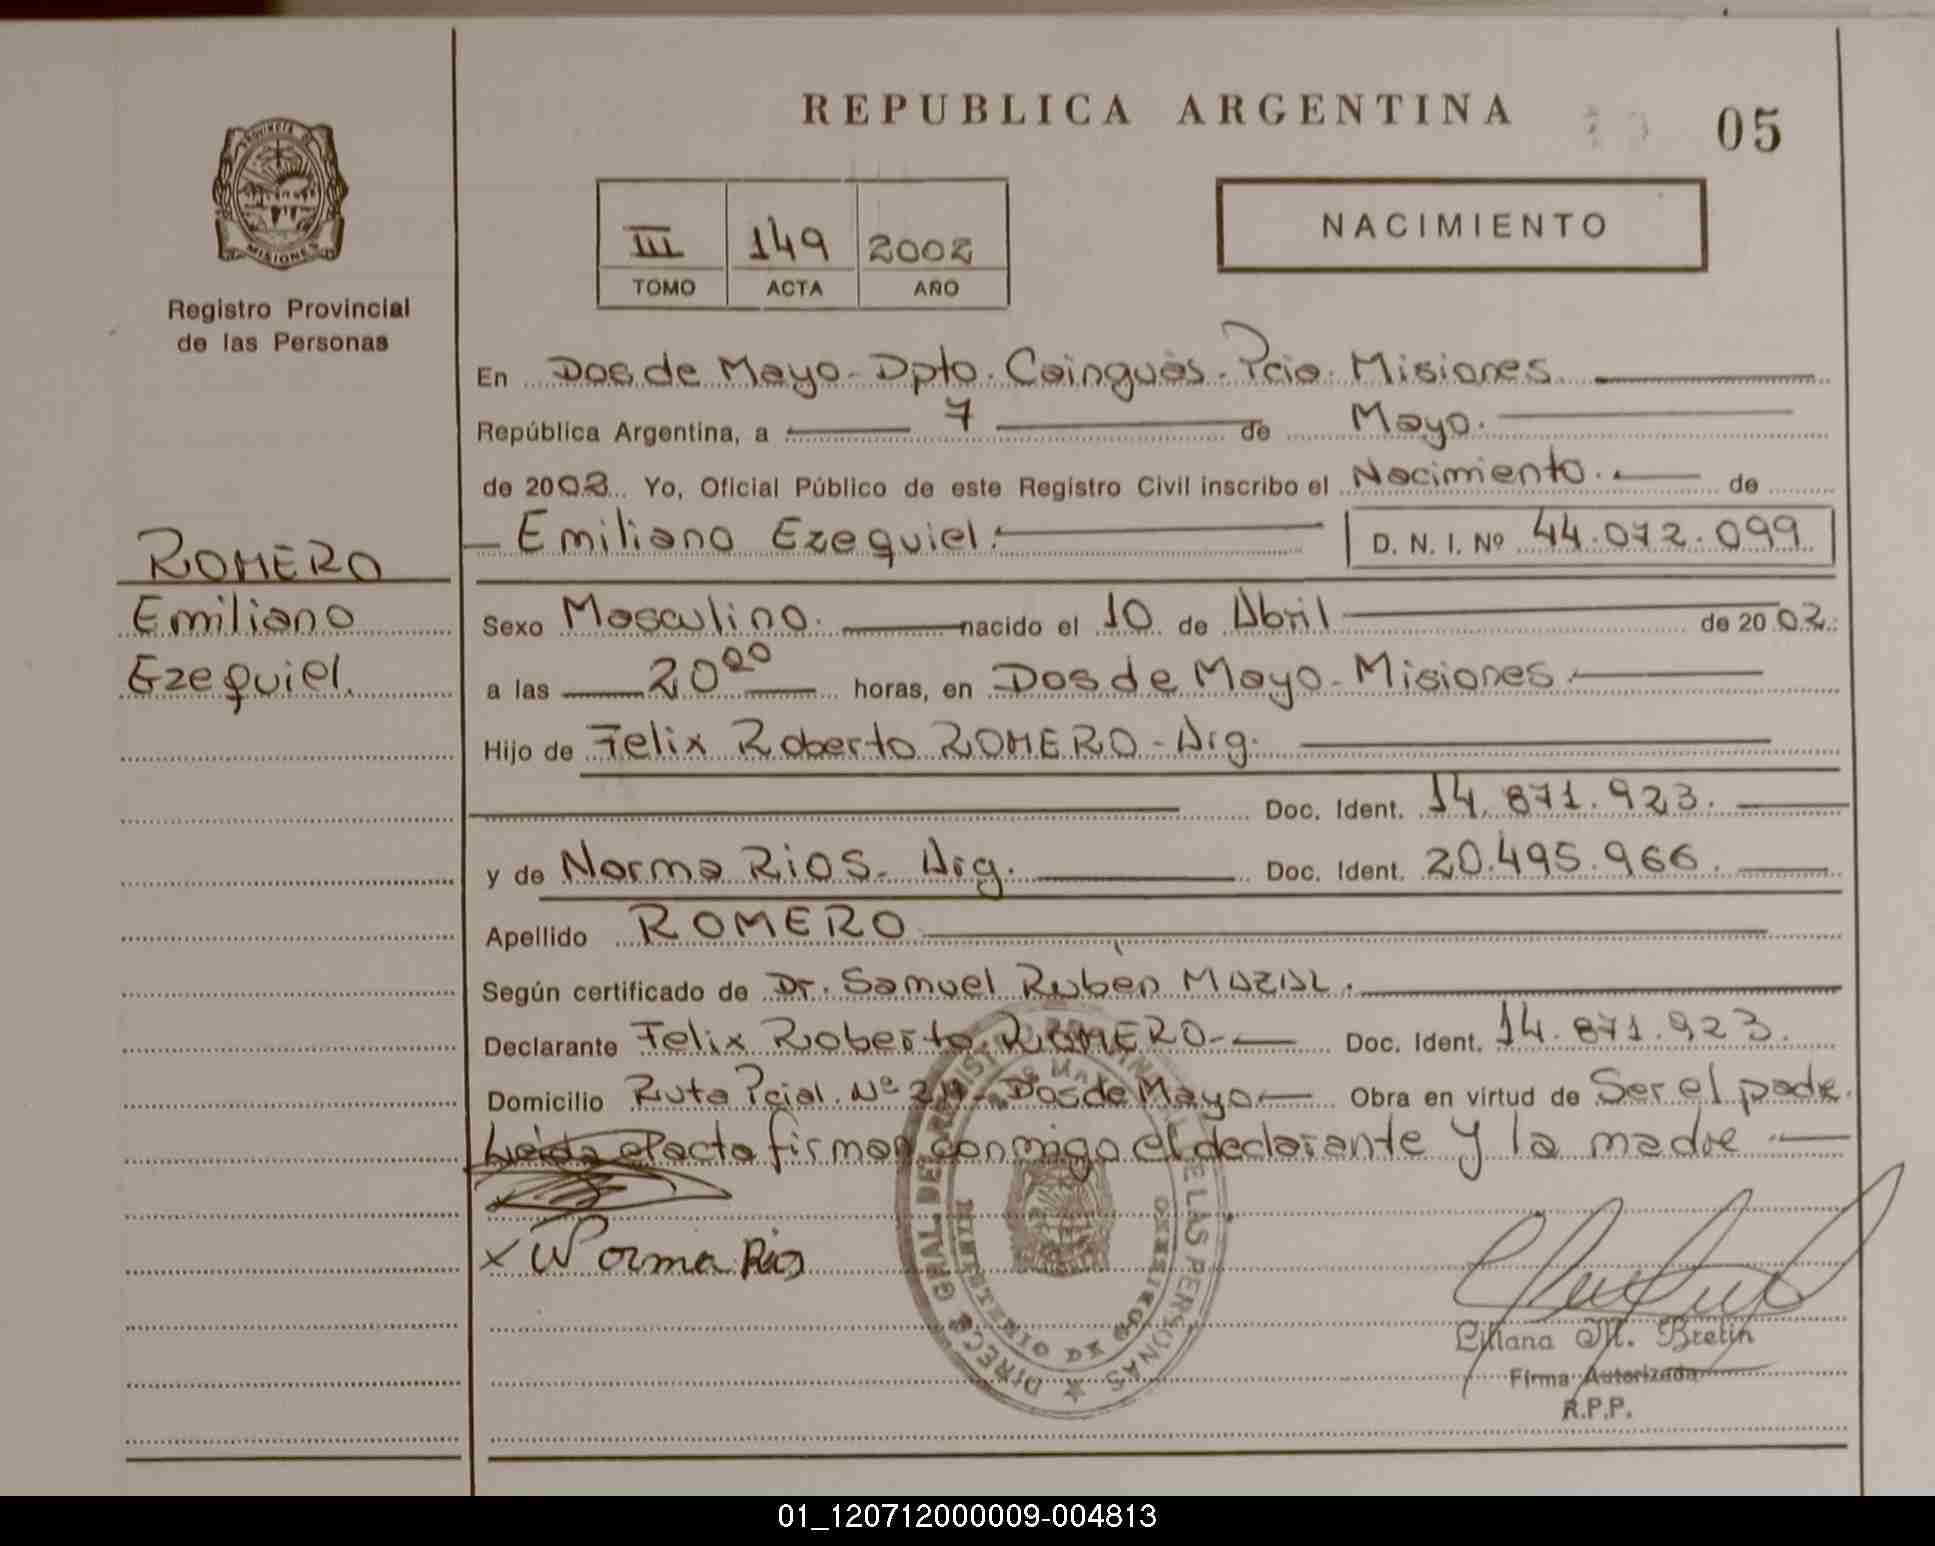 REPUBLICA ARGENTINA
05
PROVINCIA DE
MISIONES
Registro Provincial
de las Personas
III 149 2002
TOMO ACTA AÑO
NACIMIENTO
En Dos de Mayo - Dpto. Cainguás - Pcia. Misiones
República Argentina, a 7 de Mayo.
de 2002 Yo, Oficial Público de este Registro Civil inscribo el Nacimiento. de
Emiliano Ezequiel. D. N. I. Nº 44.072.099
ROMERO
Emiliano
Ezequiel.
Sexo Masculino. nacido el 10 de Abril de 2002.
a las 20 00 horas, en Dos de Mayo - Misiones
Hijo de Felix Roberto ROMERO - Arg.
Doc. Ident. 14.871.923.
y de Norma RIOS - Arg. Doc. Ident. 20.495.966.
Apellido ROMERO
Según certificado de Dr. Samuel Rubén MAZAL.
Declarante Felix Roberto ROMERO - Doc. Ident. 14.871.923.
Domicilio Ruta Pcial. Nº Dos de Mayo Obra en virtud de Ser el padre.
Leida el acta firman conmigo el declarante y la madre
x Norma Rios
DIRECC. GRAL. DEL REGISTRO DE LAS PERSONAS
Liliana M. Bretin
Firma Autorizada
R.P.P.
01_120712000009-004813